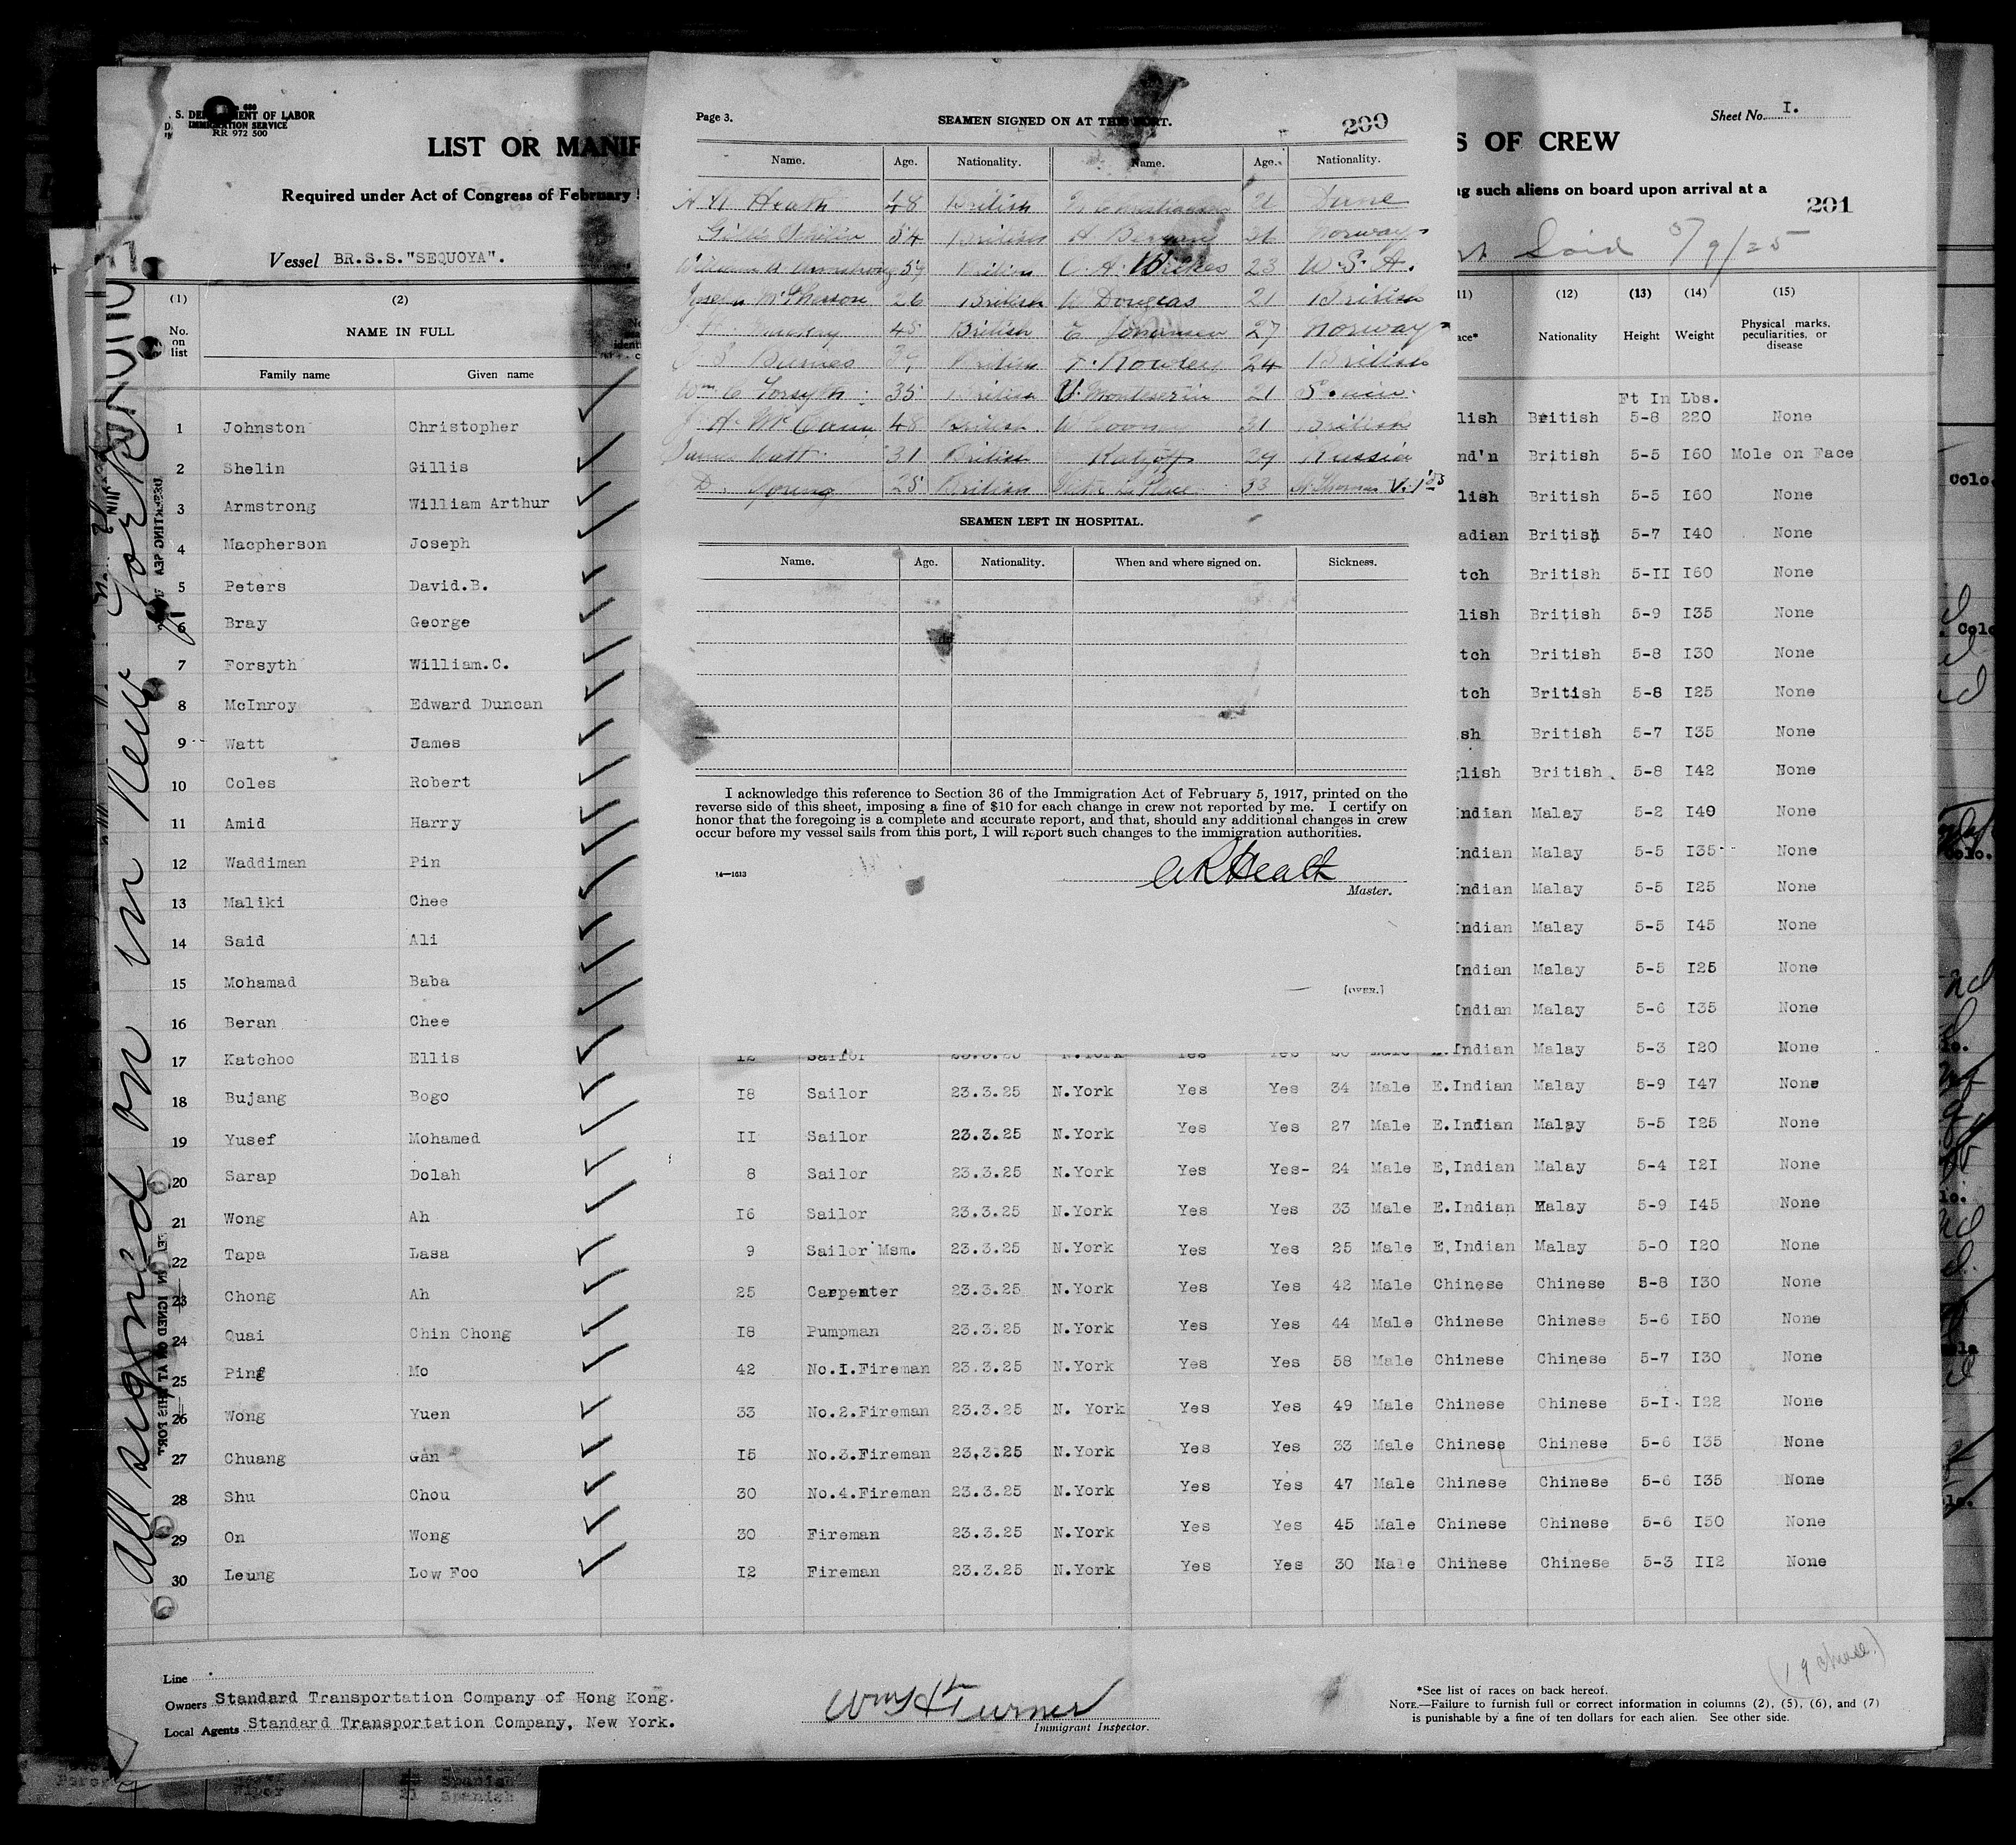 S. DEPARTMENT OF LABOR
IMMIGRATION SERVICE
RR 972 500
Sheet No. I.
LIST OR MANIF
S OF CREW
Required under Act of Congress of February 5
ng such aliens on board upon arrival at a
201
Vessel BR.S.S."SEQUOYA".
Said 5/9/25
All signed on in New York
Page 3.
SEAMEN SIGNED ON AT THIS PORT.
200
Name. Age. Nationality. Name. Age. Nationality.
Heath 48 British 21 Dane
Gillis Shelin 54 British Norway
William A. Armstrong 59 British C. A. Wickes 23 U.S.A.
Joseph McPherson 26 British W Douglas 21 British
45 British E Johansen 27 Norway
British 24 British
Wm C Forsyth 35 British 21 Spain
48 British 31 British
James Watt 31 British 29 Russia
D. Young 25 British 33 St Thomas V.I.
SEAMEN LEFT IN HOSPITAL.
Name. Age. Nationality. When and where signed on. Sickness.
I acknowledge this reference to Section 36 of the Immigration Act of February 5, 1917, printed on the
reverse side of this sheet, imposing a fine of $10 for each change in crew not reported by me. I certify on
honor that the foregoing is a complete and accurate report, and that, should any additional changes in crew
occur before my vessel sails from this port, I will report such changes to the immigration authorities.
14—1613
A R Heath
Master.
[OVER.]
(1) (2) (12) (13) (14) (15)
No. on list NAME IN FULL Nationality Height Weight Physical marks, peculiarities, or disease
Family name Given name
Ft In Lbs.
1 Johnston Christopher lish British 5-8 220 None
2 Shelin Gillis nd'n British 5-5 I60 Mole on Face
3 Armstrong William Arthur lish British 5-5 I60 None
4 Macpherson Joseph adian British 5-7 I40 None
5 Peters David.B. tch British 5-II I60 None
6 Bray George lish British 5-9 I35 None
7 Forsyth William.C. tch British 5-8 I30 None
8 McInroy Edward Duncan tch British 5-8 I25 None
9 Watt James sh British 5-7 I35 None
10 Coles Robert glish British 5-8 I42 None
11 Amid Harry Indian Malay 5-2 I40 None
12 Waddiman Pin Indian Malay 5-5 I35 None
13 Maliki Chee Indian Malay 5-5 I25 None
14 Said Ali Indian Malay 5-5 I45 None
15 Mohamad Baba Indian Malay 5-5 I25 None
16 Beran Chee Indian Malay 5-6 I35 None
17 Katchoo Ellis 12 Sailor 23.3.25 N.York Yes Yes Male E.Indian Malay 5-3 I20 None
18 Bujang Bogo I8 Sailor 23.3.25 N.York Yes Yes 34 Male E.Indian Malay 5-9 I47 None
19 Yusef Mohamed II Sailor 23.3.25 N.York Yes Yes 27 Male E.Indian Malay 5-5 I25 None
20 Sarap Dolah 8 Sailor 23.3.25 N.York Yes Yes- 24 Male E,Indian Malay 5-4 I2I None
21 Wong Ah I6 Sailor 23.3.25 N.York Yes Yes 33 Male E.Indian Malay 5-9 I45 None
22 Tapa Lasa 9 Sailor Msm. 23.3.25 N.York Yes Yes 25 Male E,Indian Malay 5-0 I20 None
23 Chong Ah 25 Carpenter 23.3.25 N.York Yes Yes 42 Male Chinese Chinese 5-8 I30 None
24 Quai Chin Chong I8 Pumpman 23.3.25 N.York Yes Yes 44 Male Chinese Chinese 5-6 I50 None
25 Ping Mo 42 No.I.Fireman 23.3.25 N.York Yes Yes 58 Male Chinese Chinese 5-7 I30 None
26 Wong Yuen 33 No.2.Fireman 23.3.25 N. York Yes Yes 49 Male Chinese Chinese 5-I I22 None
27 Chuang Gan I5 No.3.Fireman 23.3.25 N.York Yes Yes 33 Male Chinese Chinese 5-6 I35 None
28 Shu Chou 30 No.4.Fireman 23.3.25 N.York Yes Yes 47 Male Chinese Chinese 5-6 I35 None
29 On Wong 30 Fireman 23.3.25 N.York Yes Yes 45 Male Chinese Chinese 5-6 I50 None
30 Leung Low Foo I2 Fireman 23.3.25 N.York Yes Yes 30 Male Chinese Chinese 5-3 II2 None
Line
Owners Standard Transportation Company of Hong Kong.
Local Agents Standard Transportation Company, New York.
Wm H Turner
Immigrant Inspector.
*See list of races on back hereof.
NOTE.—Failure to furnish full or correct information in columns (2), (5), (6), and (7)
is punishable by a fine of ten dollars for each alien. See other side.